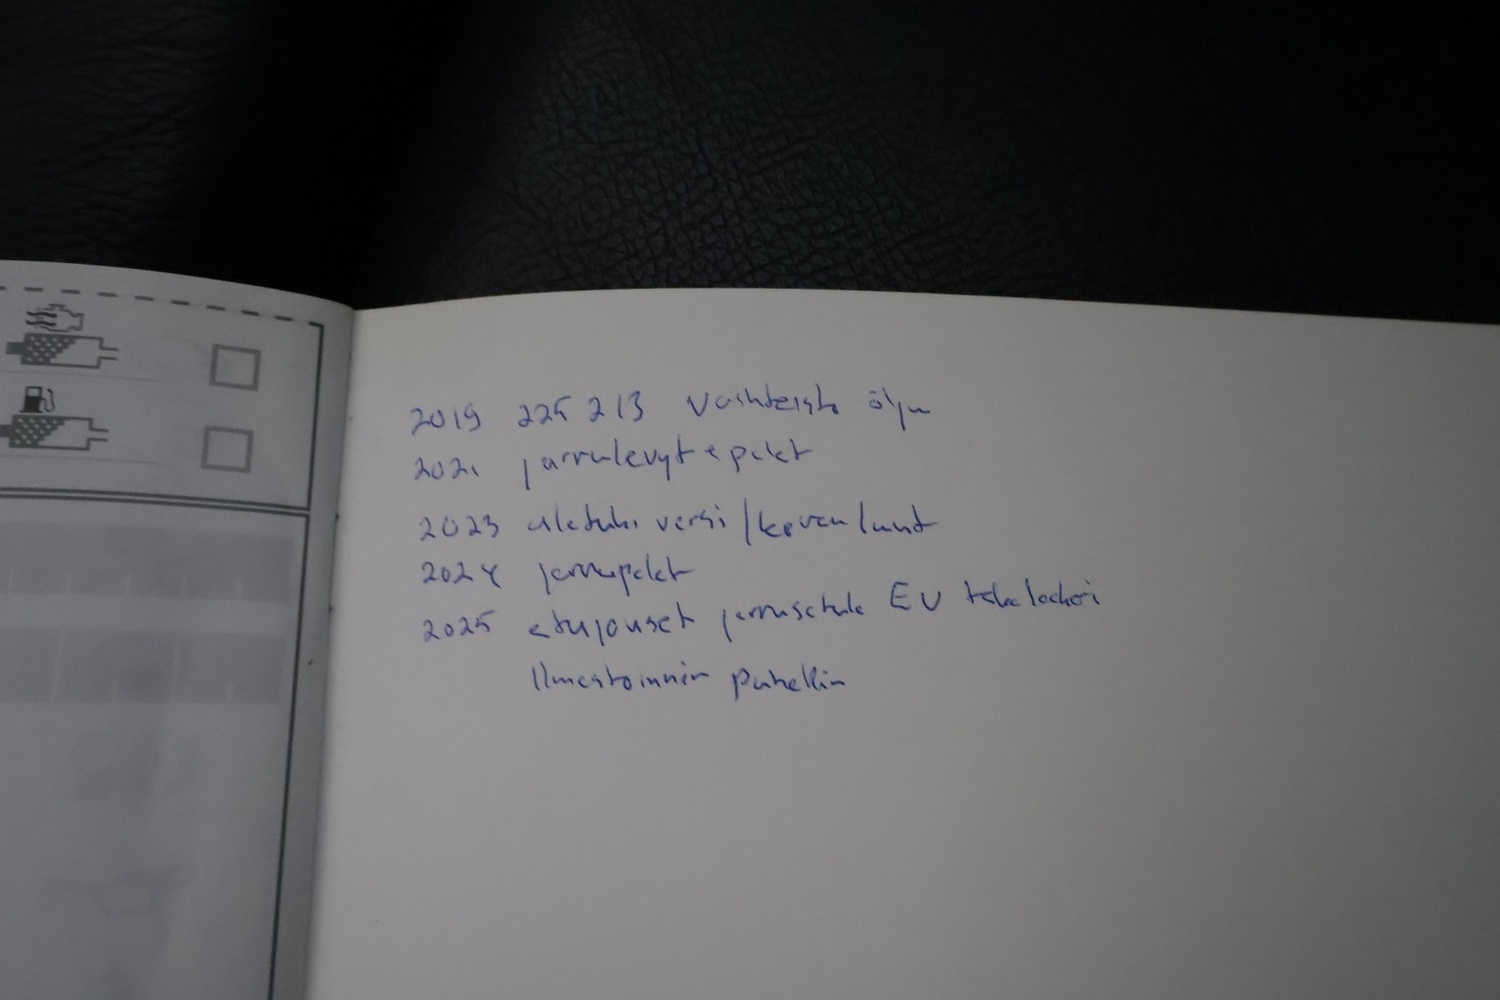 2019 225 213 Vaihteisto öljy
2021 jarrulevyt + palat
2023 alatuki versi / koiran luut
2024 jarrupalat
2025 etujouset jarrusatula EV takalokari
Ilmastoinnin puhallin